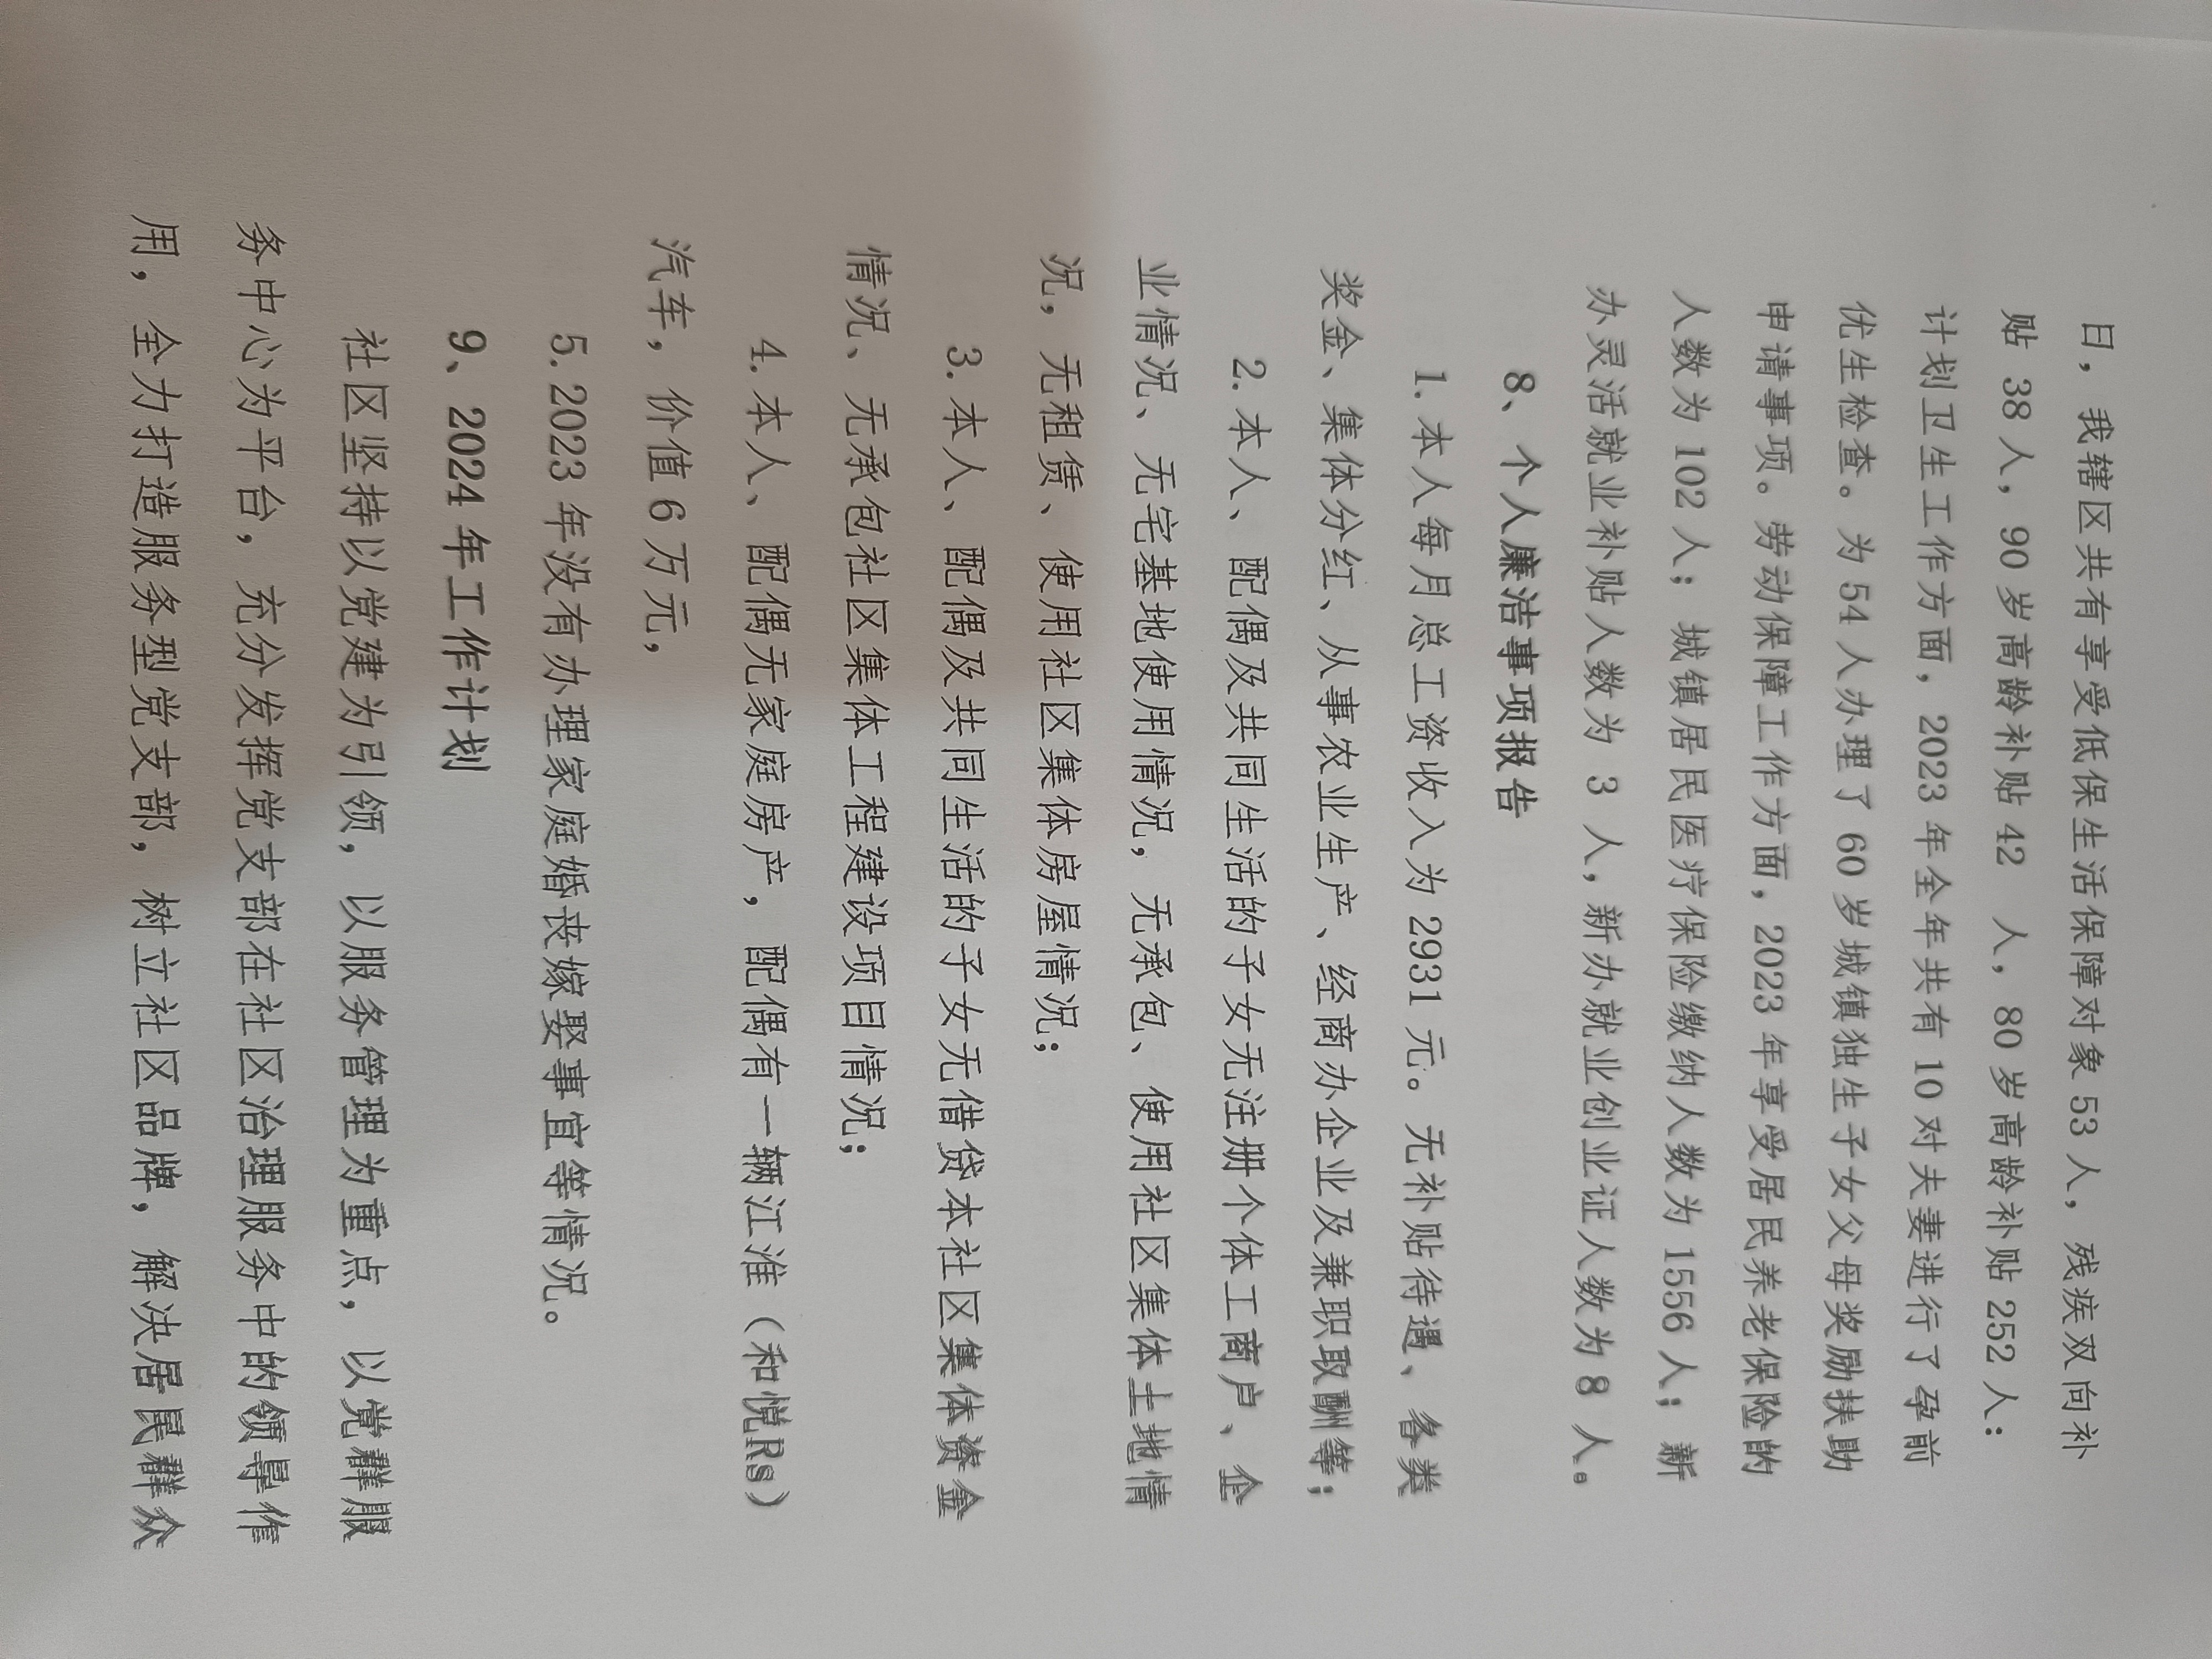 日，我辖区共有享受低保生活保障对象 53 人，残疾双向补
贴 38 人，90 岁高龄补贴 42 人，80 岁高龄补贴 252 人：
计划卫生工作方面，2023 年全年共有 10 对夫妻进行了孕前
优生检查。为 54 人办理了 60 岁城镇独生子女父母奖励扶助
申请事项。劳动保障工作方面，2023 年享受居民养老保险的
人数为 102 人；城镇居民医疗保险缴纳人数为 1556 人；新
办灵活就业补贴人数为 3 人，新办就业创业证人数为 8 人。
8、个人廉洁事项报告
1. 本人每月总工资收入为 2931 元。无补贴待遇、各类
奖金、集体分红、从事农业生产、经商办企业及兼职取酬等；
2. 本人、配偶及共同生活的子女无注册个体工商户、企
业情况、无宅基地使用情况，无承包、使用社区集体土地情
况，无租赁、使用社区集体房屋情况；
3. 本人、配偶及共同生活的子女无借贷本社区集体资金
情况、无承包社区集体工程建设项目情况；
4. 本人、配偶无家庭房产，配偶有一辆江淮（和悦Rs）
汽车，价值 6 万元，
5. 2023 年没有办理家庭婚丧嫁娶事宜等情况。
9、2024 年工作计划
社区坚持以党建为引领，以服务管理为重点，以党群服
务中心为平台，充分发挥党支部在社区治理服务中的领导作
用，全力打造服务型党支部，树立社区品牌，解决居民群众